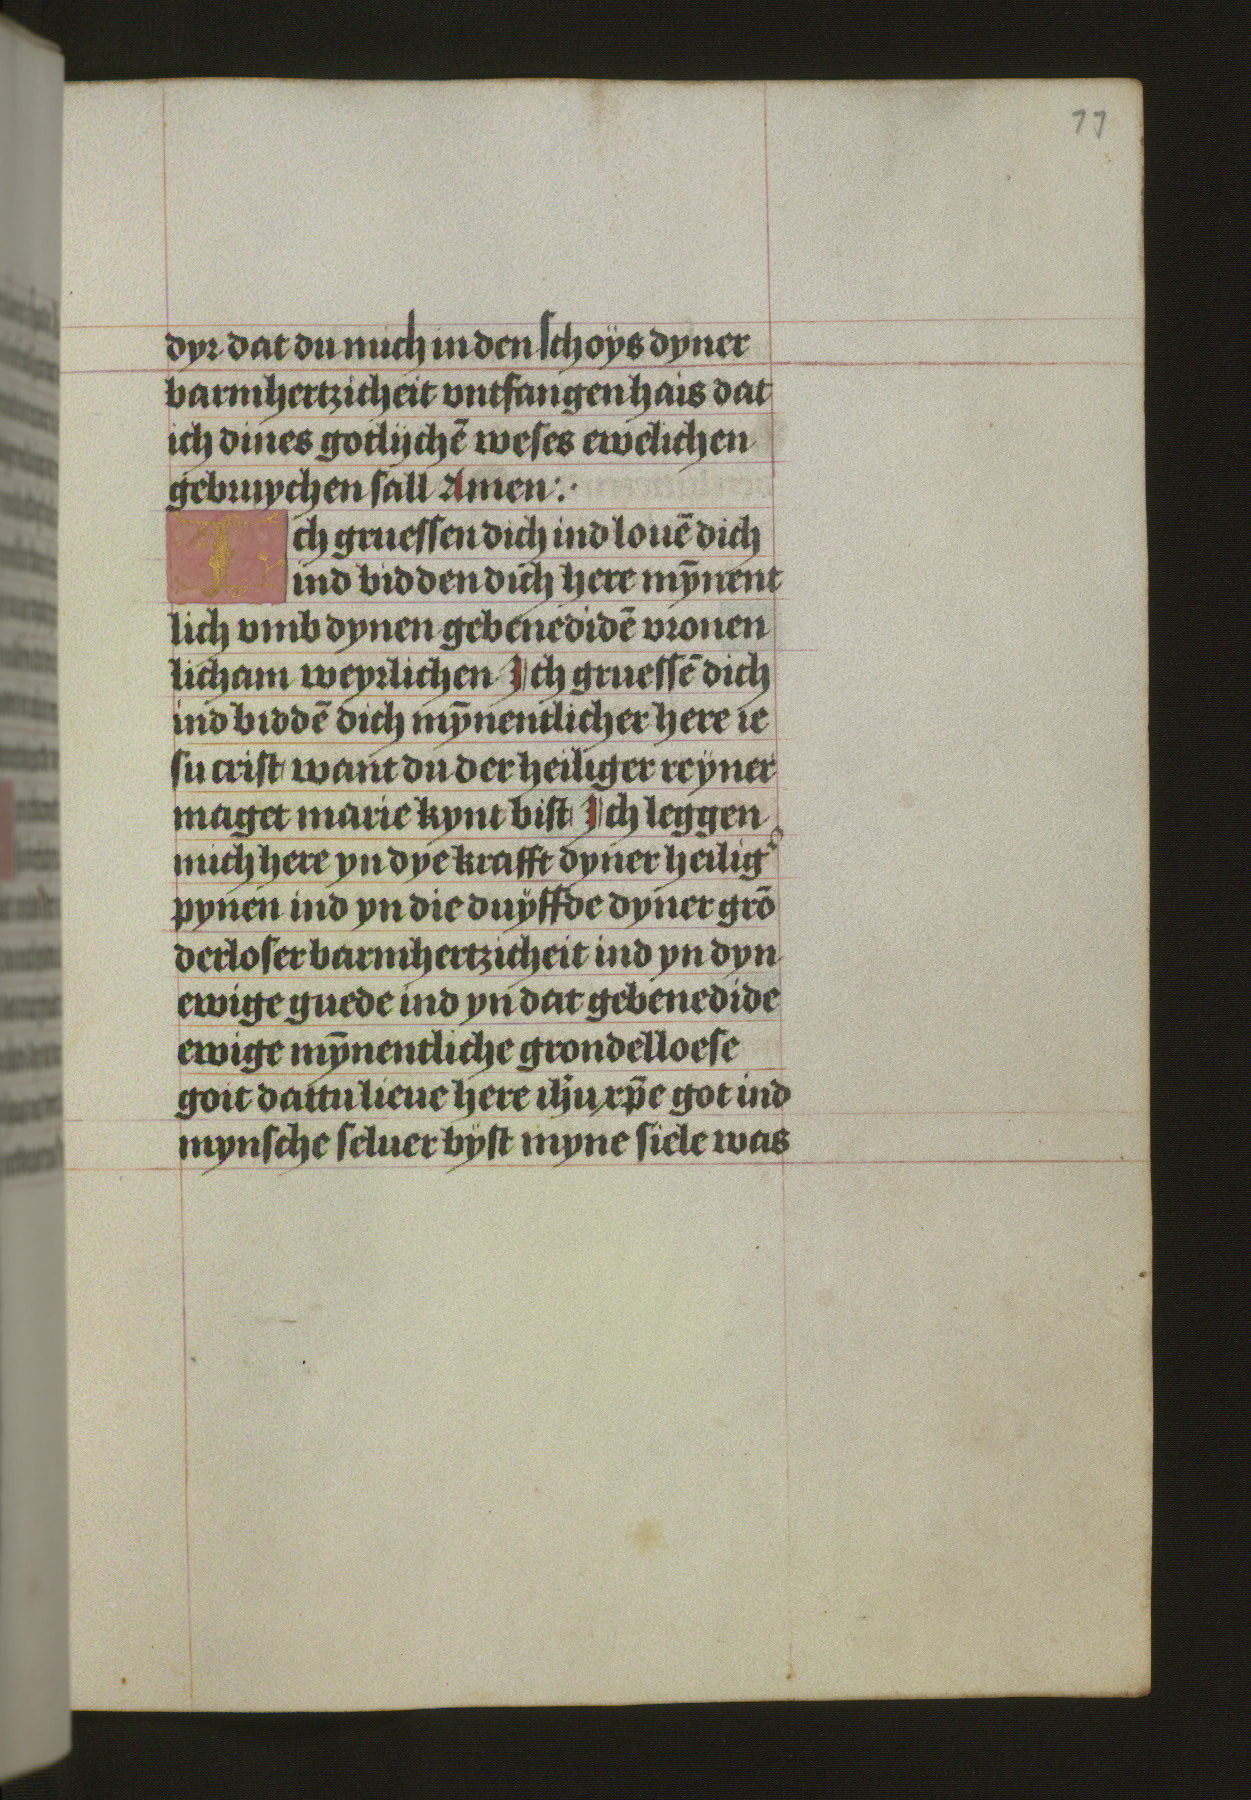 77
dyr dat du mich in den schoÿs dyner
barmhertzicheit vntfangen hais dat
ich dines gotlijchē weses ewelichen
gebruychen sall Amen :·
Ich gruessen dich ind louē dich
ind bidden dich here mȳnent
lich vmb dynen gebenedidē vronen
licham weyrlichen Ich gruessē dich
ind biddē dich mȳnentlicher here ie
su crist want du der heiliger reÿner
maget marie kynt bist Ich leggen
mich here yn dye krafft dyner heilig
pynen ind yn die duÿffde dyner grō
derloser barmhertzicheit ind yn dyn
ewige guede ind yn dat gebenedide
ewige mȳnentliche grondelloese
goit dattu lieue here ihū xp̄e got ind
mynsche seluer bÿst myne siele was